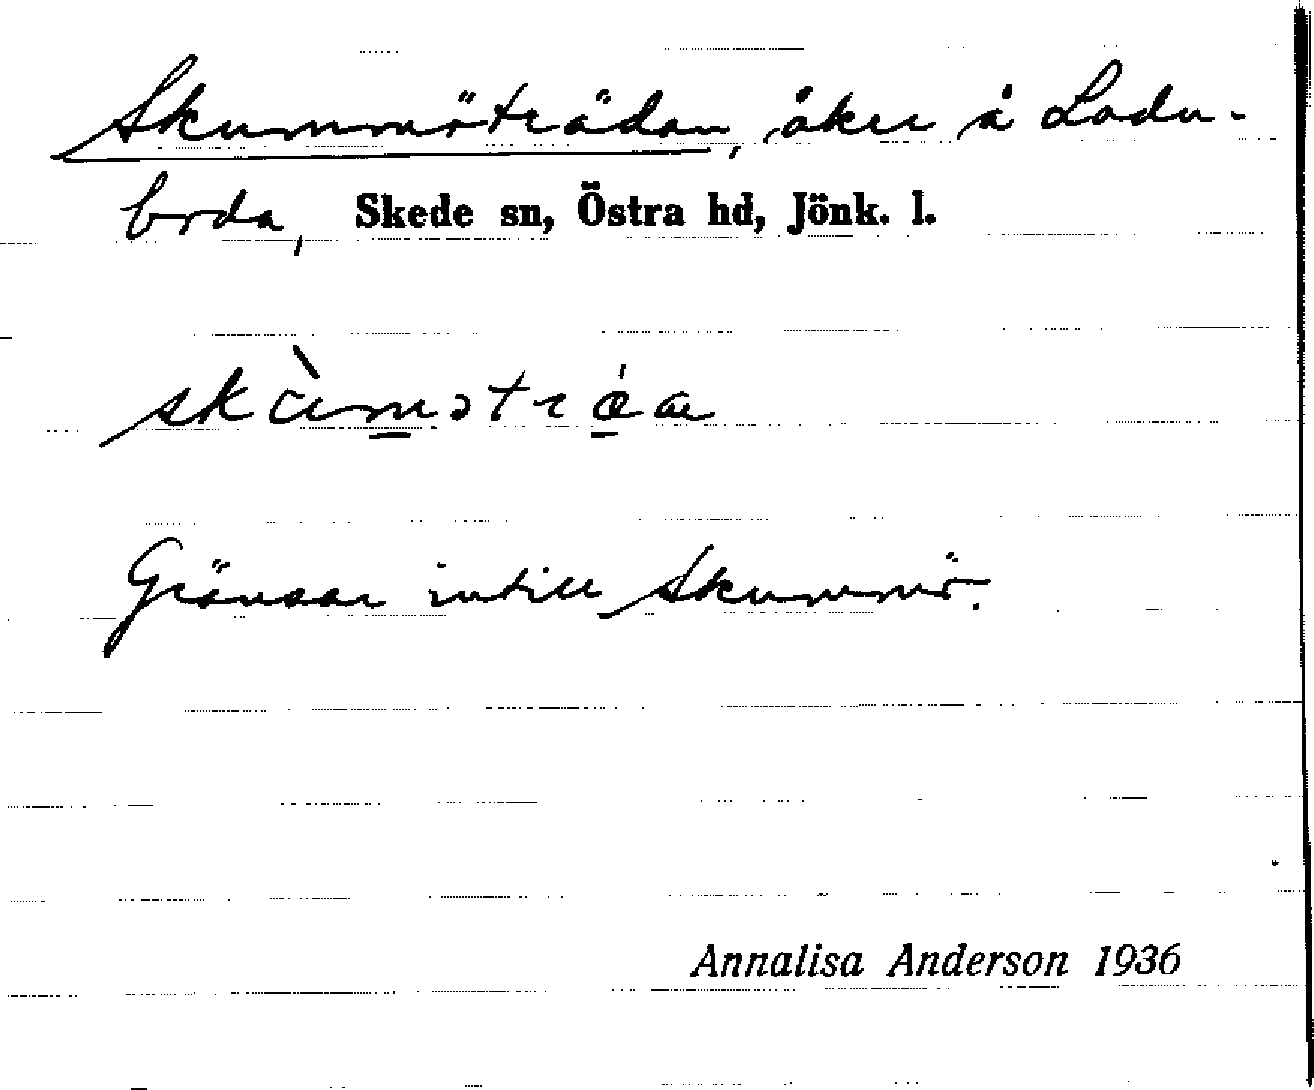 Skummöträdan, åker å Ladu-
borda, Skede sn, Östra hd, Jönk. l.
Gränsar intill Skummö.
Annalisa Anderson 1936